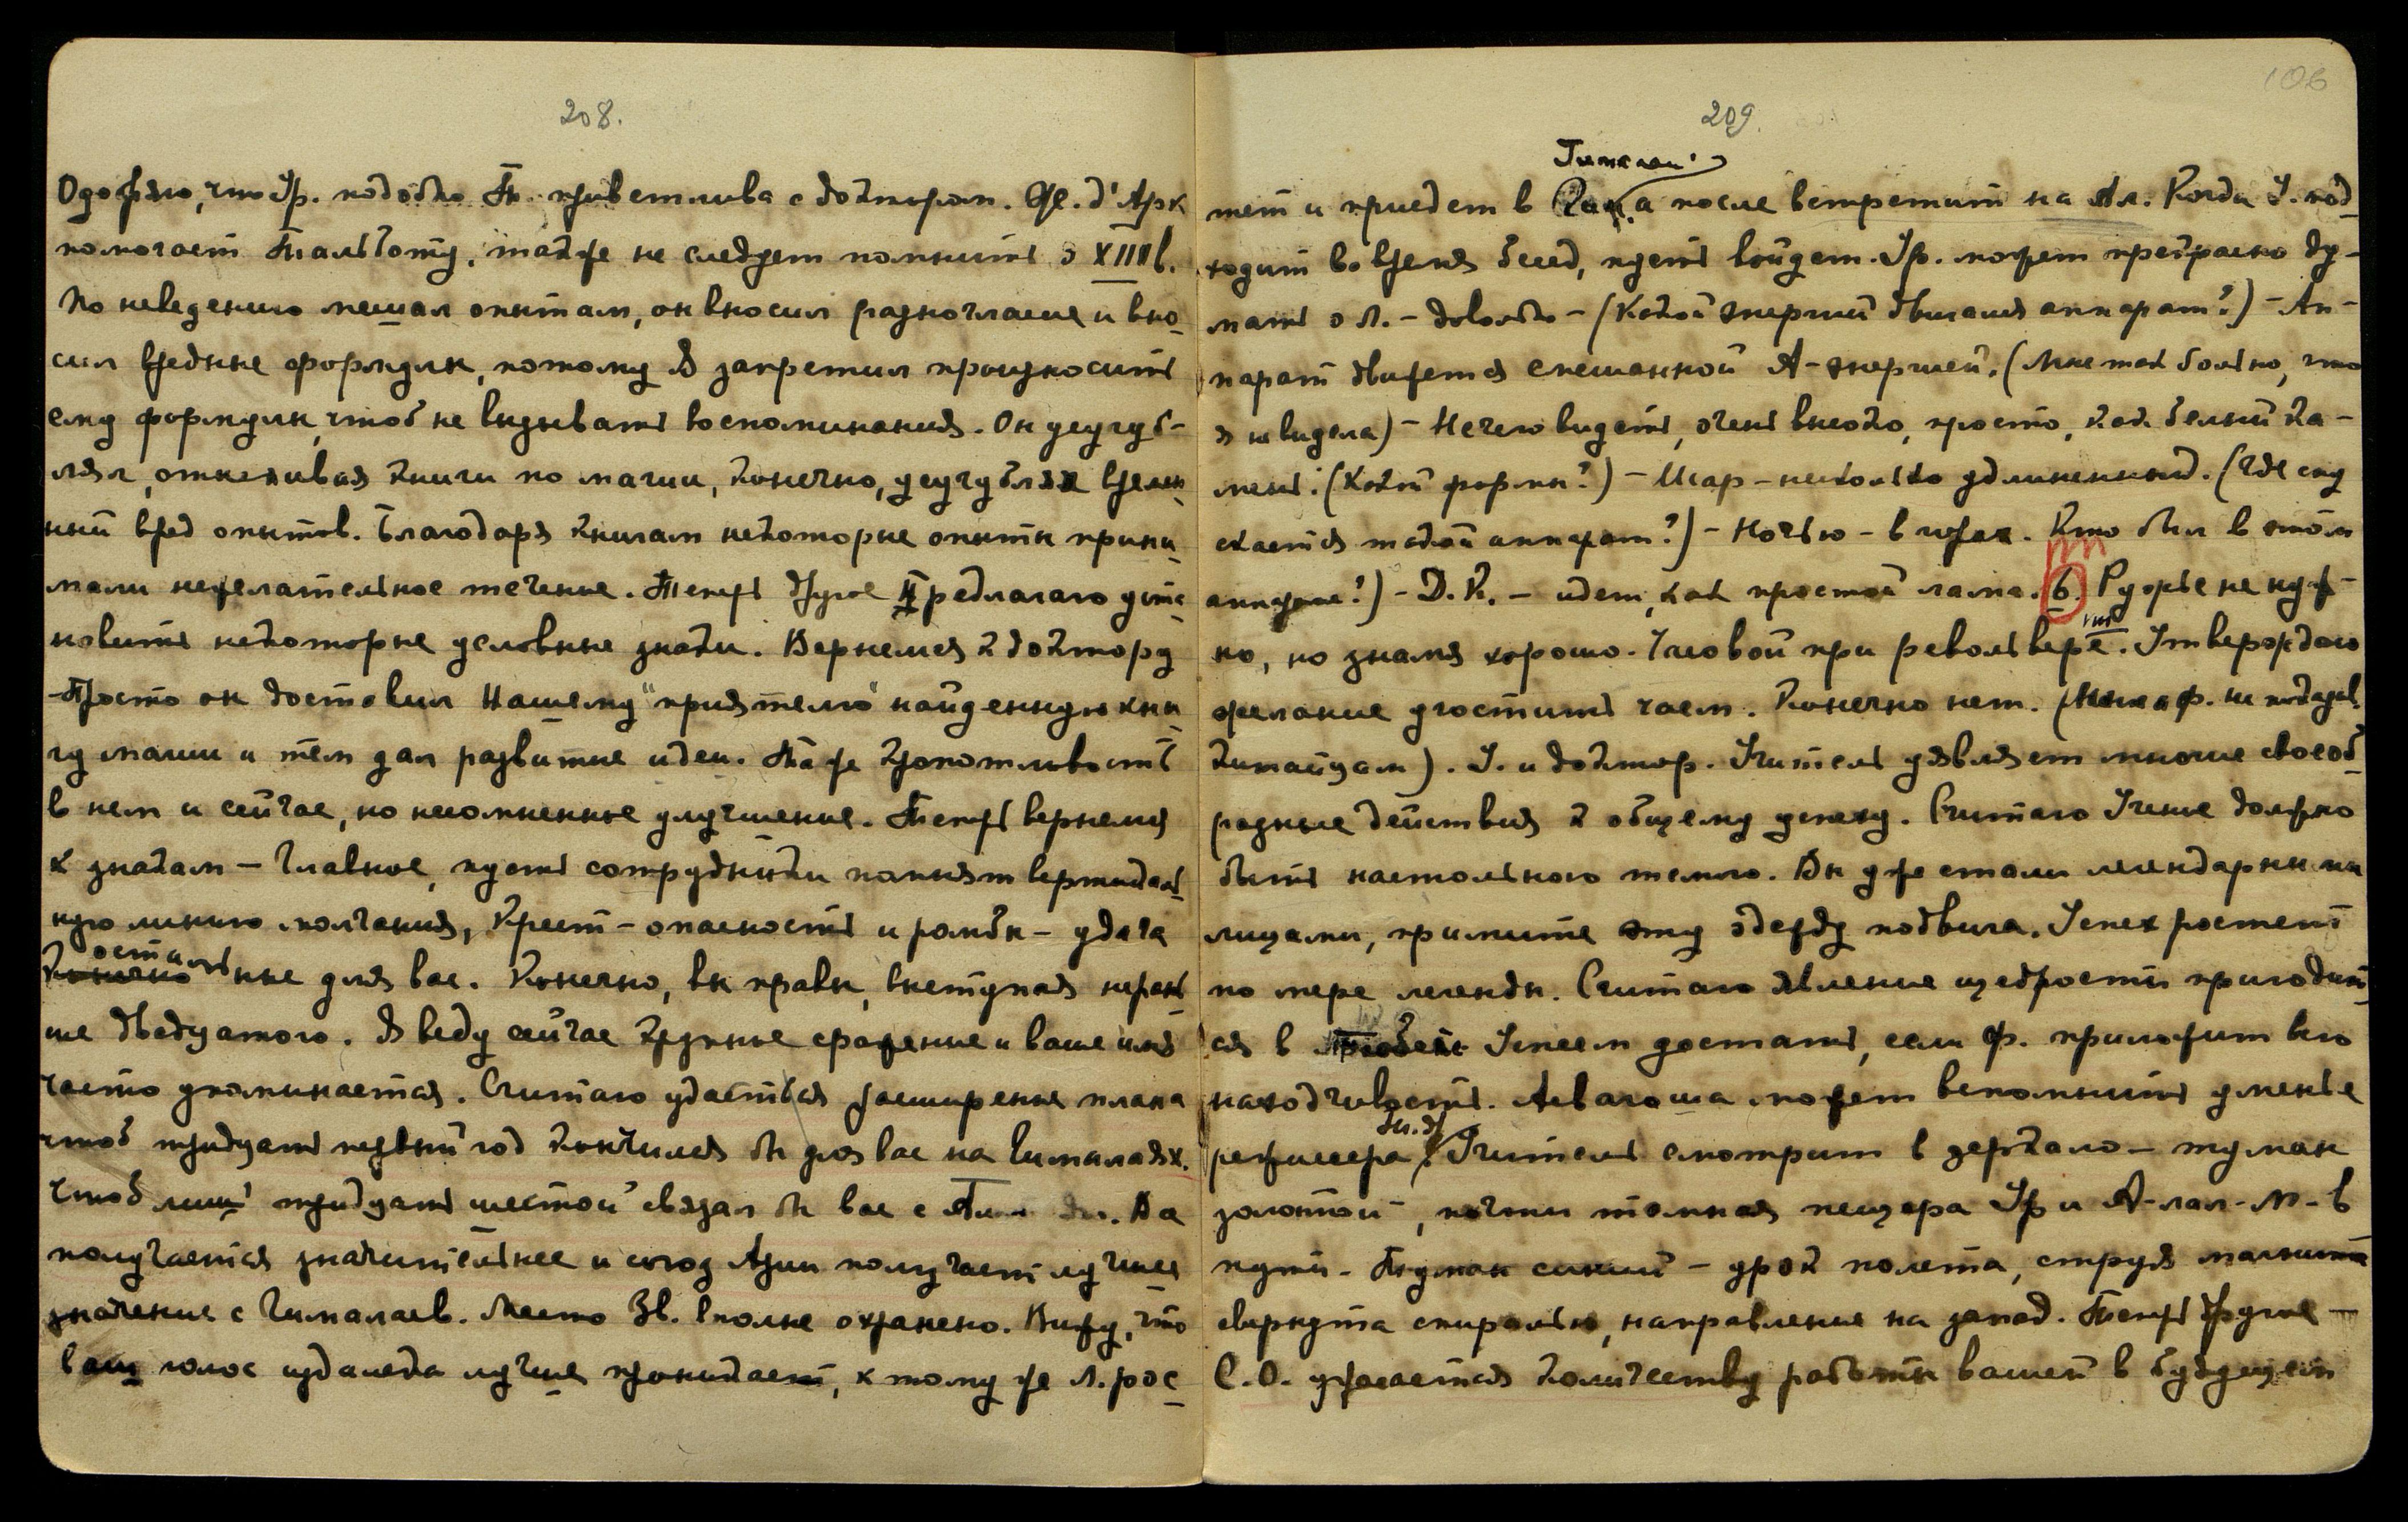 208.
Одобряю, что Ур. подобно Т. приветлива с доктором. Же. д'Арк
помогает Тальботу, также не следует помнить о XIII в.
По неведению мешал опытам, он вносил разногласие и вно-
сил вредные формулы, потому Я запретил произносить
ему формулы, чтоб не вызывать воспоминания. Он усугуб-
лял, откапывая книги по магии, конечно, усугубляя
ный вред опытов. Благодаря книгам некоторые опыты прини-
мали нежелательное течение. Теперь другое Предлагаю уста-
новить некоторые условные знаки. Вернемся к доктору
- Просто он доставил Нашему "приятелю" найденную кни-
гу магии и тем дал развитие идеи. Та же кропотливость
в нем и сейчас, но несомненное улучшение. Теперь вернемся
к знакам – Главное, пусть сотрудники помнят вертикаль-
ную линию молчания, Крест – опасность и ромбы – удача
остальные для вас. Конечно, вы правы, выступая не рань-
ше двадцатого. Я веду сейчас крупные сражение и ваше имя
часто упоминается. Считаю удастся расширение плана
чтоб тридцать первый год кончился бы для вас на Гималаях.
Чтоб лишь тридцать шестой связал бы вас с
получается значительнее и исход Азии получает лучшее
значение с Гималаев. Место Зв. вполне охранено. Вижу, что
ваш голос издалека лучше проникает, к тому же Л. рос-
106
209.
Гималаи
тет и приедет в а после встретит на Ал. Когда У. под-
ходит во время бесед, пусть войдет. Ур. может прекрасно ду-
мать о Л. – довольно – (Какой энергией двигался аппарат?) – Ап-
парат движется смешанной А-энергией. (Мне так больно, что
я не видела) – Нечего видеть, очень высоко, просто, как белый ка-
мень. (Какой формы?) – Шар – несколько удлиненный. (Где спу-
скается такой аппарат?) – Ночью – в горах. Кто был в этом
аппарате?) – Д. К. – идет, как простой лама. 6. Ружье не нуж-
но, но знамя хорошо. Часовой при револьвере. Утверждаю
желание угостить чаем. Конечно нет. не показав
китайцам). У. и доктор. Учитель являет многие своеоб-
разные действия к общему успеху. Считаю Учение должно
быть настольною темою. Вы уже стали легендарными
лицами, примите эту одежду подвига. Успех растет
по мере легенды. Считаю явление щедрости пригодит-
ся в Успеем достать, если Ф. приложит всю
находчивость. Авлагоша может вспомнить уменье
режиссера, Учитель смотрит в зеркало – туман
золотой, почти темная пещера Ур и А-лал-М- в
пути. Туман синий – урок полета, струя магнита
свернута спиралью, направление на запад. Теперь другое –
С. О. ужасается количеству работы вашей в будущем